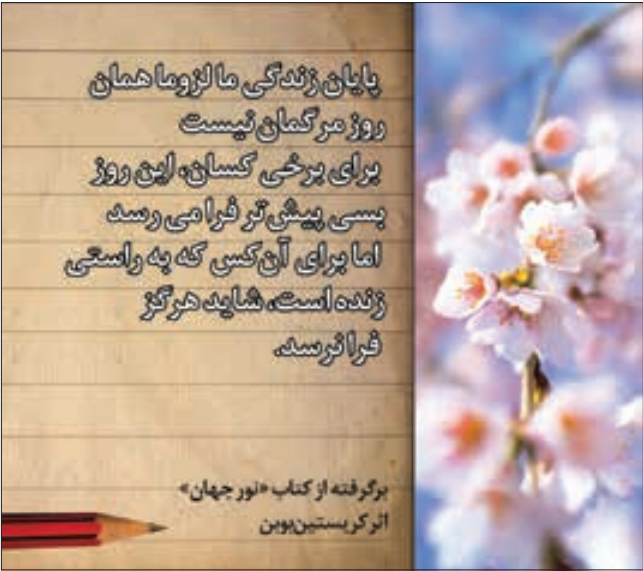 پایان زندگی ما لزوما همان
روز مرگمان نیست
برای برخی کسان، این روز
بسی پیش‌تر فرا می رسد
اما برای آن‌کس که به راستی
زنده است، شاید هرگز
فرا نرسد.
برگرفته از کتاب «نور جهان»
اثر کریستین‌بوبن